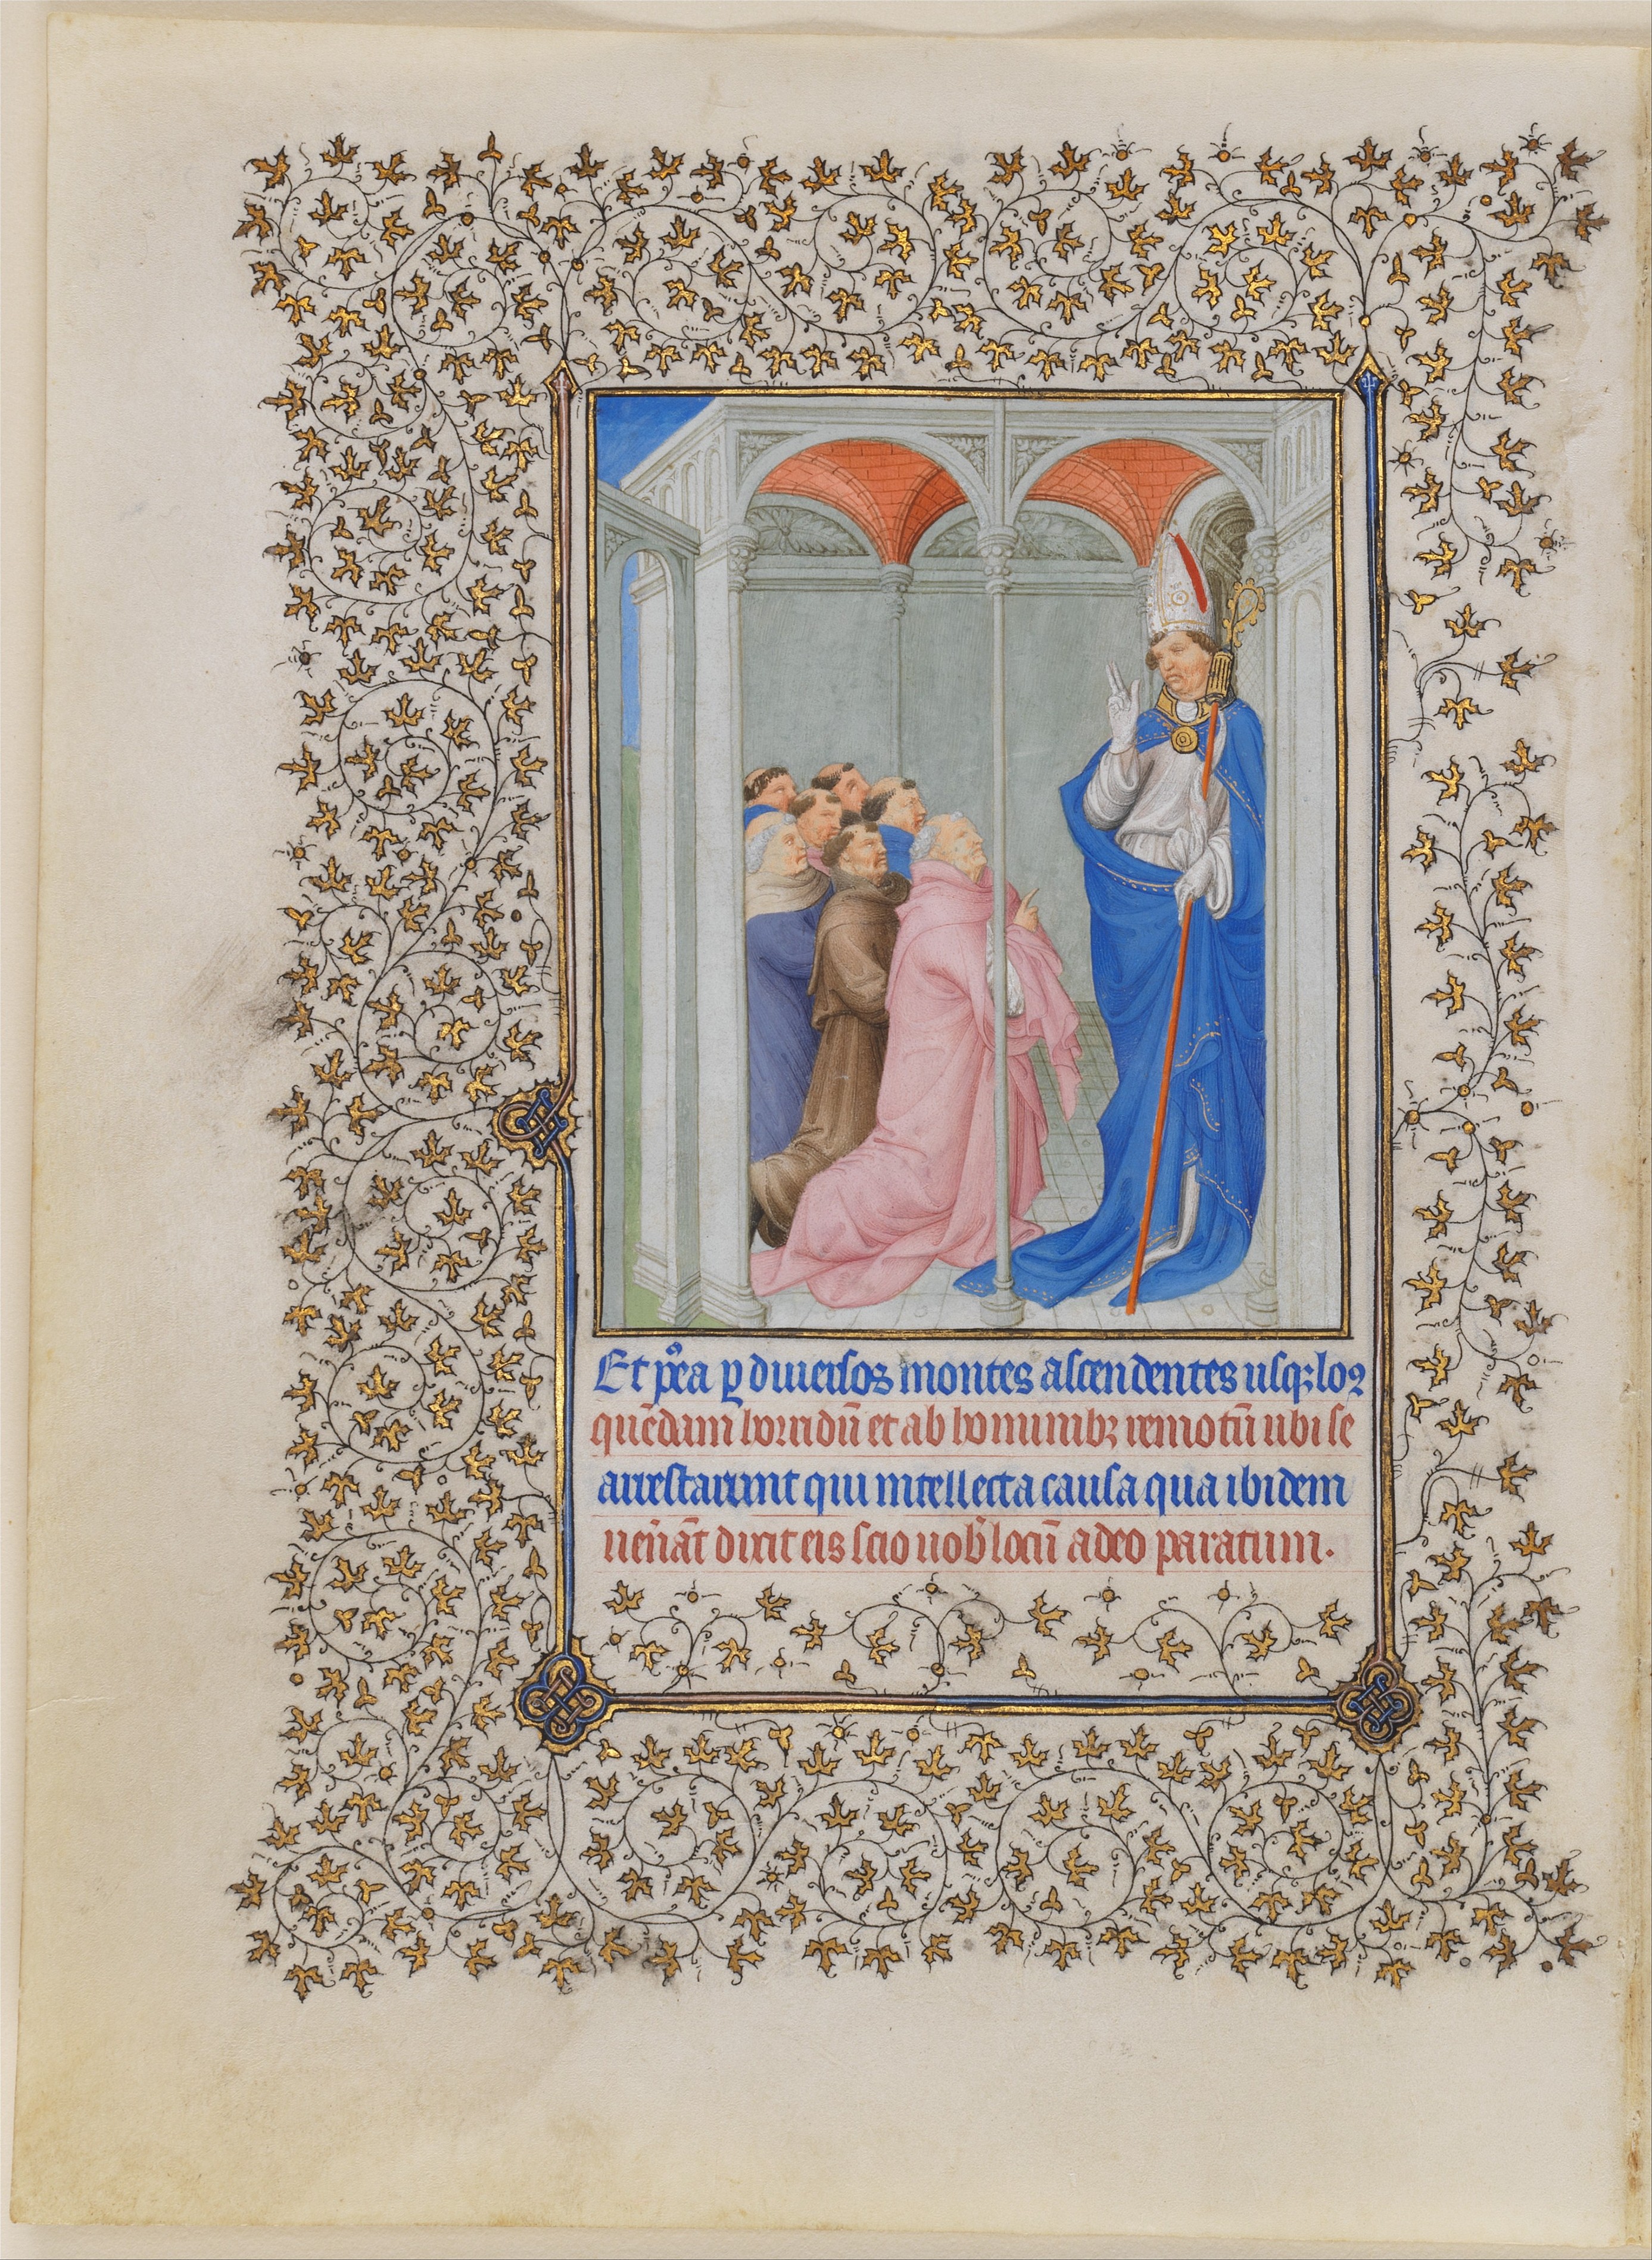 Et p̄ea ꝑ diuersos montes ascendentes usqꝫ loꝯ
quēdam horridū et ab hominibꝫ remotū ubi se
arrestarunt qui intellecta causa qua ibidem
uen̄āt dixit eis scio uob̄ locū adeo paratum.